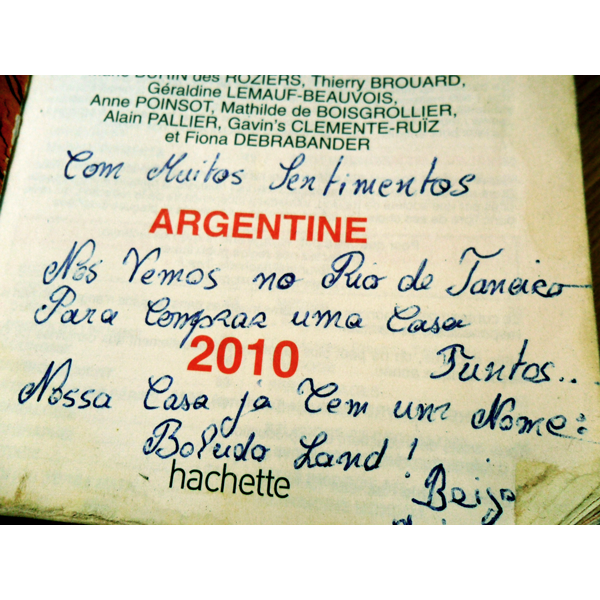 BURIN des ROZIERS, Thierry BROUARD,
Géraldine LEMAUF-BEAUVOIS,
Anne POINSOT, Mathilde de BOISGROLLIER,
Alain PALLIER, Gavin's CLEMENTE-RUÏZ
et Fiona DEBRABANDER
Com Muitos Sentimentos
ARGENTINE
Nós Vemos no Rio de Janeiro
Para Comprar uma Casa
2010
Juntos..
Nossa Casa já Tem um Nome:
Boludo Land!
hachette
Beijo